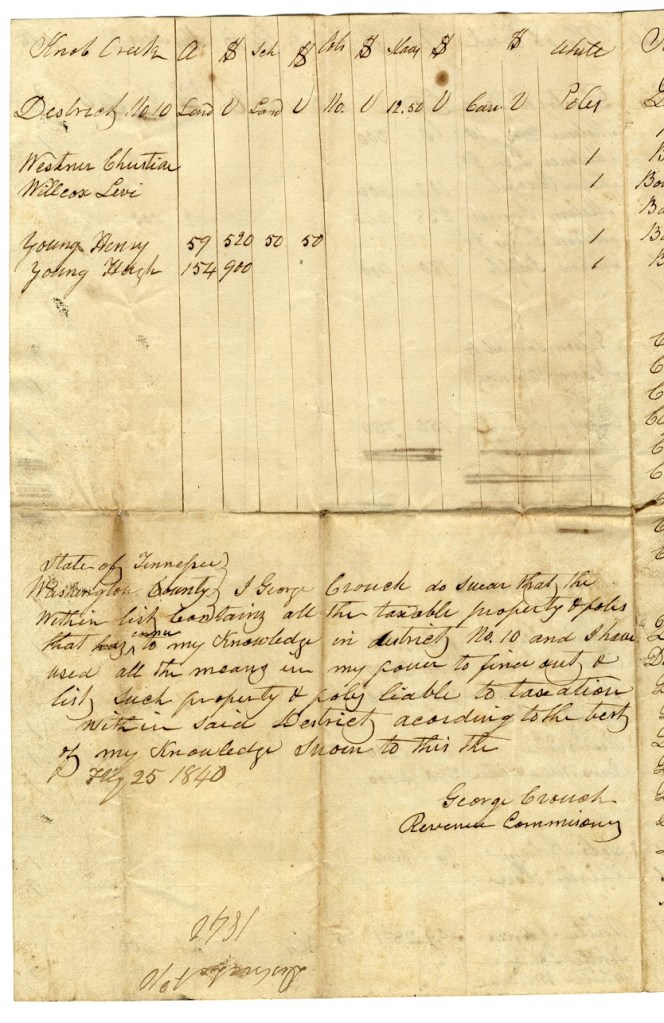 Knob Creek A $ Sch $ Cols $ $ $ White
District No. 10 Land V Land V No. V 12.50 V Care V Poles
Westner Christian 1
Willcox Levi 1
Young Henry 59 520 50 50 1
Young Hugh 154 900 1
State of Tennessee
Washington County I George Crouch do swear that the
within list Contains all the taxable property & poles
that has come to my Knowledge in district No. 10 and I have
used all the means in my power to find out &
list such property & poles liable to taxation
within said District acording to the best
of my Knowledge Sworn to this the
25 1840
George Crouch
Revenue Commisoner
184
District No